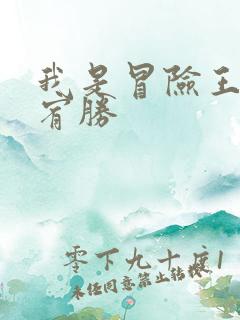 我是冒險王
宵勝
零下九十度1
未经同意禁止转载